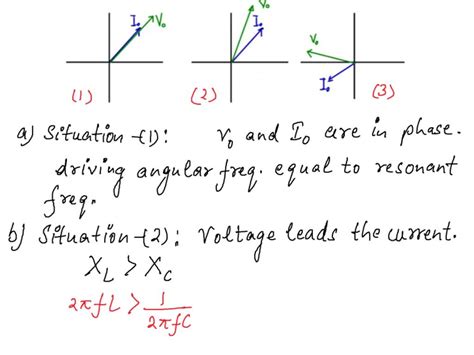 I₀ V₀ V₀ I₀ V₀ I₀
(1) (2) (3)
a) Situation-(1): V₀ and I₀ are in phase.
driving angular freq. equal to resonant
freq.
b) Situation-(2): Voltage leads the current.
X_L > X_C
2πfL > 1/2πfC